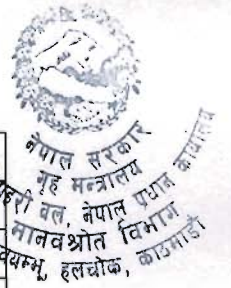 नेपाल सरकार
गृह मन्त्रालय
प्रहरी बल, नेपाल प्रधान कार्यालय
मानवश्रोत विभाग
हलचोक, काठमाडौं